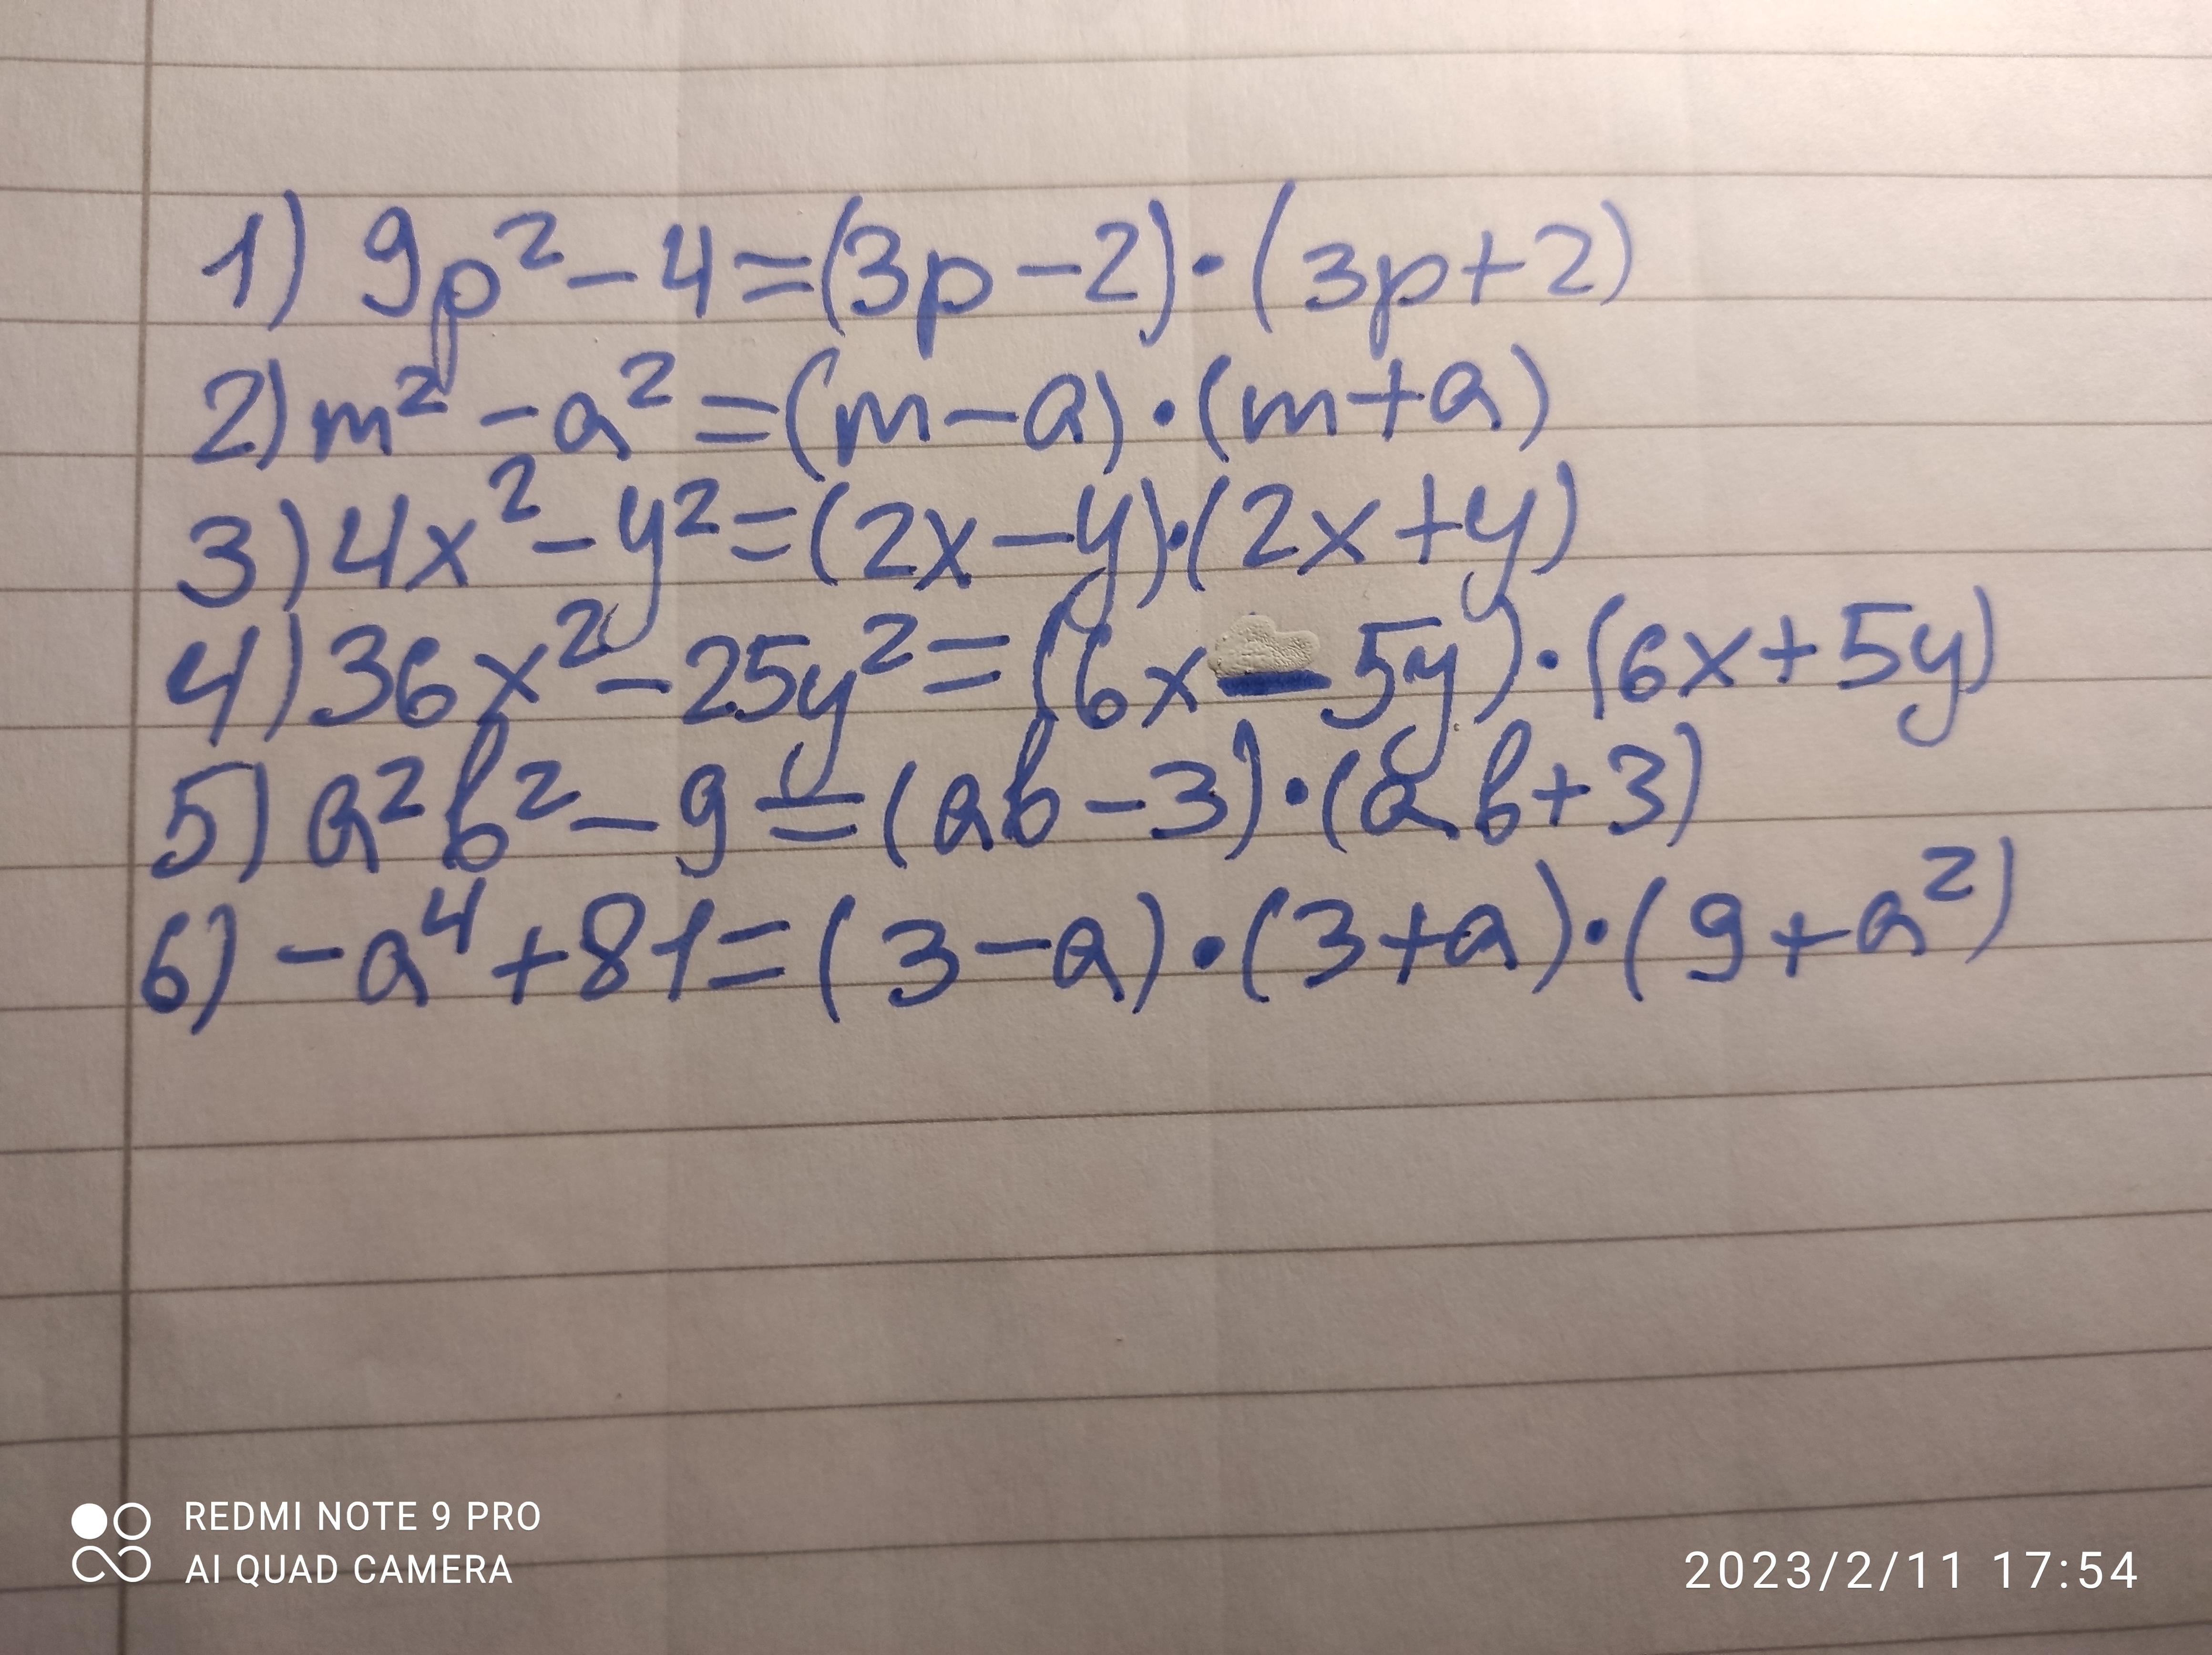 1) 9p² - 4 = (3p - 2) · (3p + 2)
2) m² - a² = (m - a) · (m + a)
3) 4x² - y² = (2x - y) · (2x + y)
4) 36x² - 25y² = (6x - 5y) · (6x + 5y)
5) a²b² - 9 = (ab - 3) · (ab + 3)
6) -a⁴ + 81 = (3 - a) · (3 + a) · (9 + a²)
REDMI NOTE 9 PRO
AI QUAD CAMERA
2023/2/11 17:54